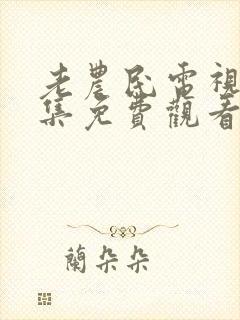 老農民電視
集免費觀看
蘭朵朵